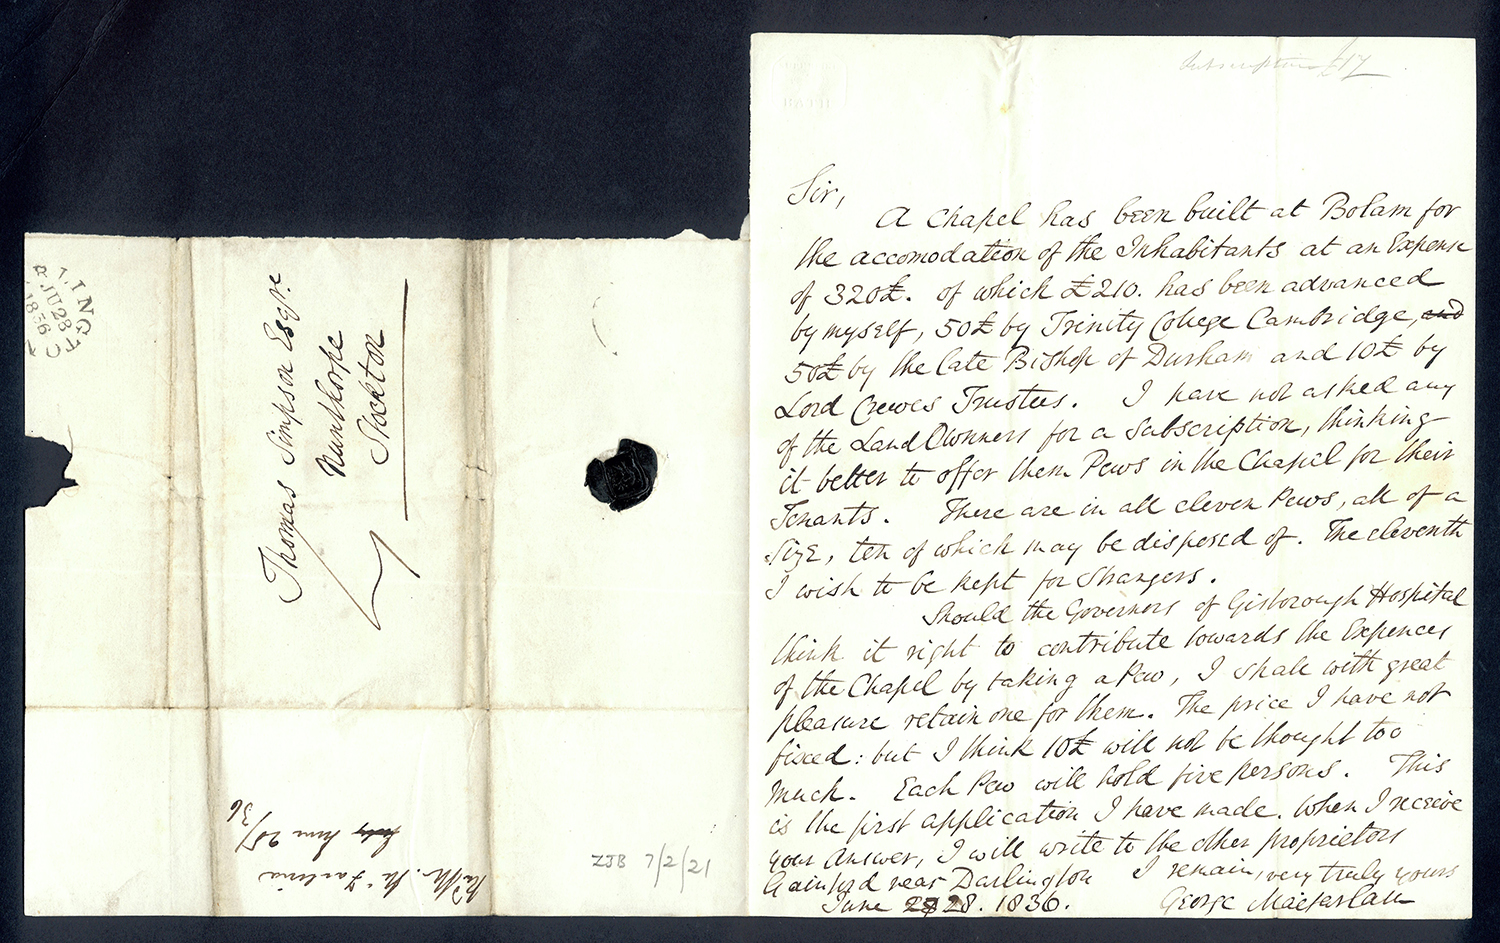 Subscription £17
Sir,
A Chapel has been built at Bolam for
the accomodation of the Inhabitants at an Expense
of 320£. of which £210. has been advanced
by myself, 50£ by Trinity College Cambridge, and
50£ by the late Bishop of Durham and 10£ by
Lord Crewes Trustees. I have not asked any
of the Land Owners for a Subscription, thinking
it better to offer them Pews in the Chapel for their
Tenants. There are in all eleven Pews, all of a
Size, ten of which may be disposed of. The eleventh
I wish to be kept for Strangers.
Should the Governors of Gisborough Hospital
think it right to contribute towards the Expences
of the Chapel by taking a Pew, I shall with great
pleasure retain one for them. The price I have not
fixed: but I think 10£ will not be thought too
much. Each Pew will hold five persons. This
is the first application I have made. When I receive
your Answer, I will write to the other proprietors
I remain, very truly yours
Gainford near Darlington
George Macfarlan
June 28. 1836.
Thomas Simpson Esqre.
Nunthorpe
Stockton
LINGTO
JU 28
1836
June 28/36
ZJB 7/2/21